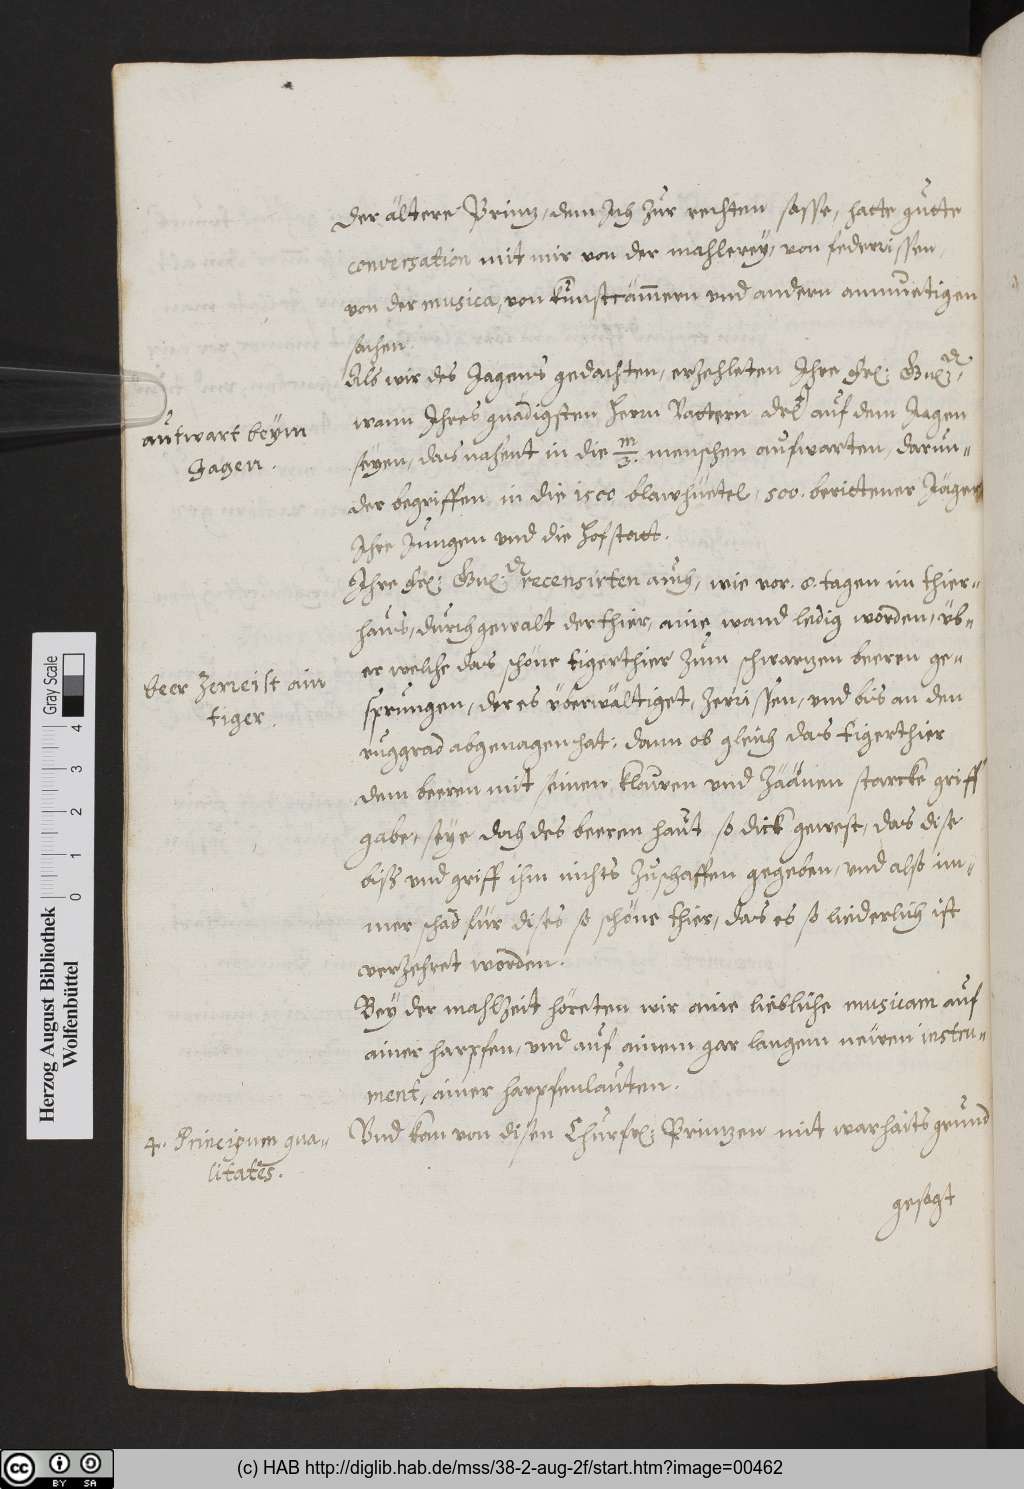 der ältere Printz, dem Ich zur rechten sasse, hatte gutte
conversation mit mir von der mahlerey, von federrissen,
von der musica, von kunstcamern vnd andern anmuetigen
sachen.
Als wir des Jagens gedachten, erzehleten Ihre frl: Gnl:
wann Ihres gnädigsten Herrn Vattern auf dem Jagen
seyen, das nahent in die m/3. menschen aufwarten, darun-
der begriffen in die 1500 blawhüetel, 500. berittener Jäger
Ihre Jungen vnd die hofstatt.
Ihre frl: Gnl: recensirten auch, wie vor. 8. tagen im thier-
hauß, durch gewalt der thier, aine wand ledig worden, üb-
er welche das schöne tigerthier zum schwartzen beeren ge-
sprungen, der es überwältiget, zerrissen, vnd bis an den
ruggrad abgenagen hat: dann ob gleich das tigerthier
dem beeren mit seinen klawen vnd Zäänen starcke griff
gabe, seye doch des beeren haut so dick gewest, das dise
biss vnd griff ihm nichts zuschaffen gegeben, vnd also im-
mer schad für dises so schöne thier, das es so liederlich ist
verzehret worden.
Bey der mahlzeit höreten wir aine liebliche musicam auf
ainer harpfen, vnd auf ainem gar langem newen instru-
ment, ainer harpfenlauten.
Vnd kan von disen Churfrl: Printzen mit warhaits grund
gesagt
aufwart beym
Jagen.
beer zerreist ain
tiger.
4. Principum qua-
litates.
Herzog August Bibliothek
Wolfenbüttel
0 1 2 3 4
Gray Scale
cc BY SA
(c) HAB http://diglib.hab.de/mss/38-2-aug-2f/start.htm?image=00462